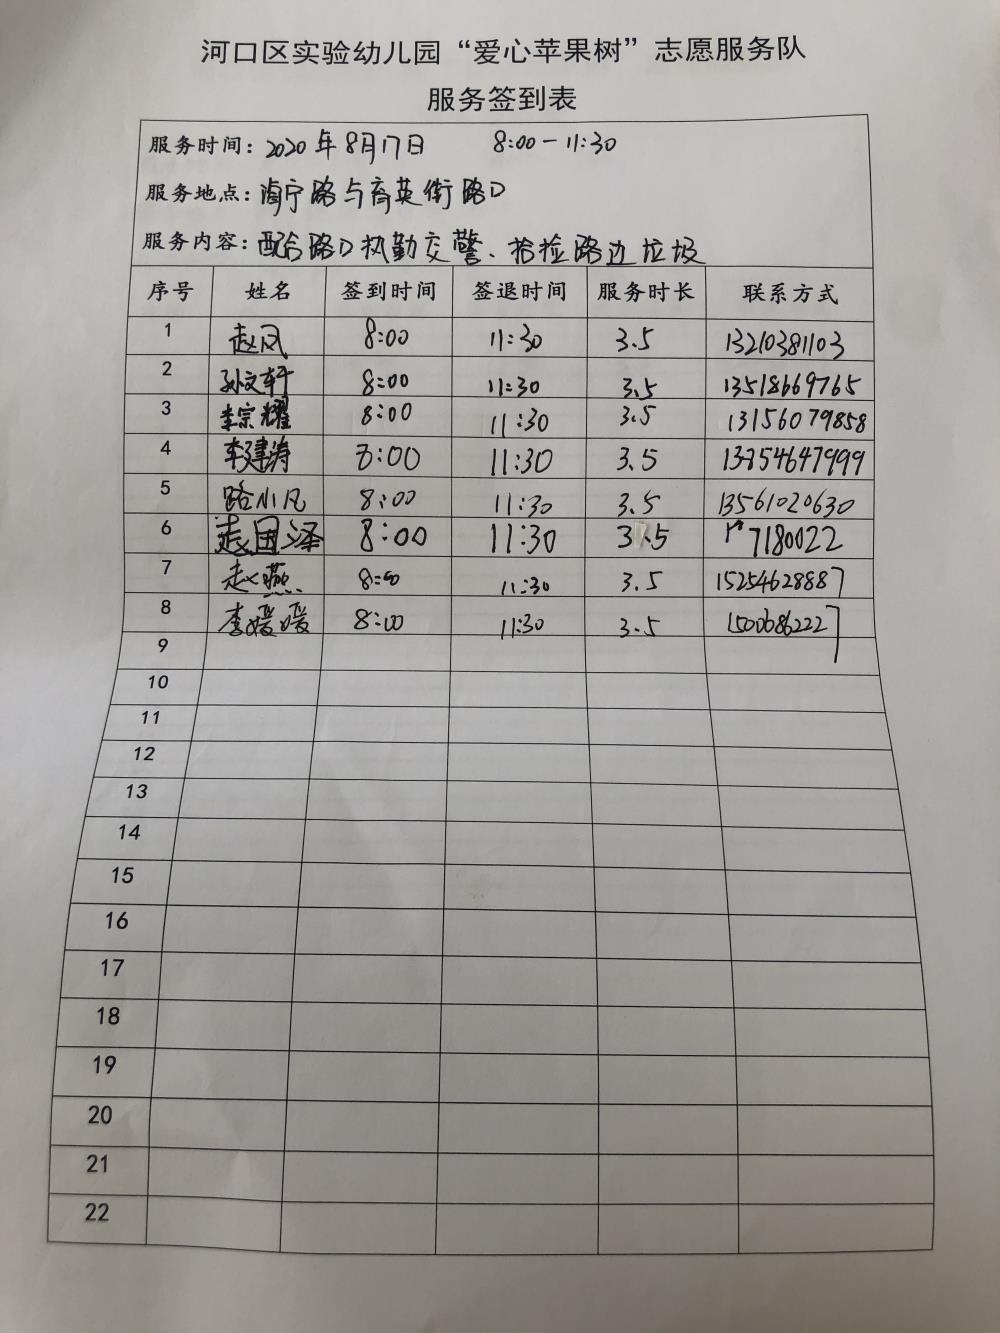 河口区实验幼儿园“爱心苹果树”志愿服务队
服务签到表
服务时间: 2020年8月17日 8:00-11:30
服务地点: 海宁路与育英街路口
服务内容: 配合路口执勤交警、拾捡路边垃圾
序号 姓名 签到时间 签退时间 服务时长 联系方式
1 赵风 8:00 11:30 3.5 13210381103
2 孙文轩 8:00 11:30 3.5 13518669765
3 李宗耀 8:00 11:30 3.5 13156079858
4 李建涛 8:00 11:30 3.5 13254647999
5 路小凡 8:00 11:30 3.5 13561020630
6 赵国泽 8:00 11:30 3.5 7180022
7 赵燕 8:00 11:30 3.5 15254628887
8 李媛媛 8:00 11:30 3.5 15006862227
9
10
11
12
13
14
15
16
17
18
19
20
21
22